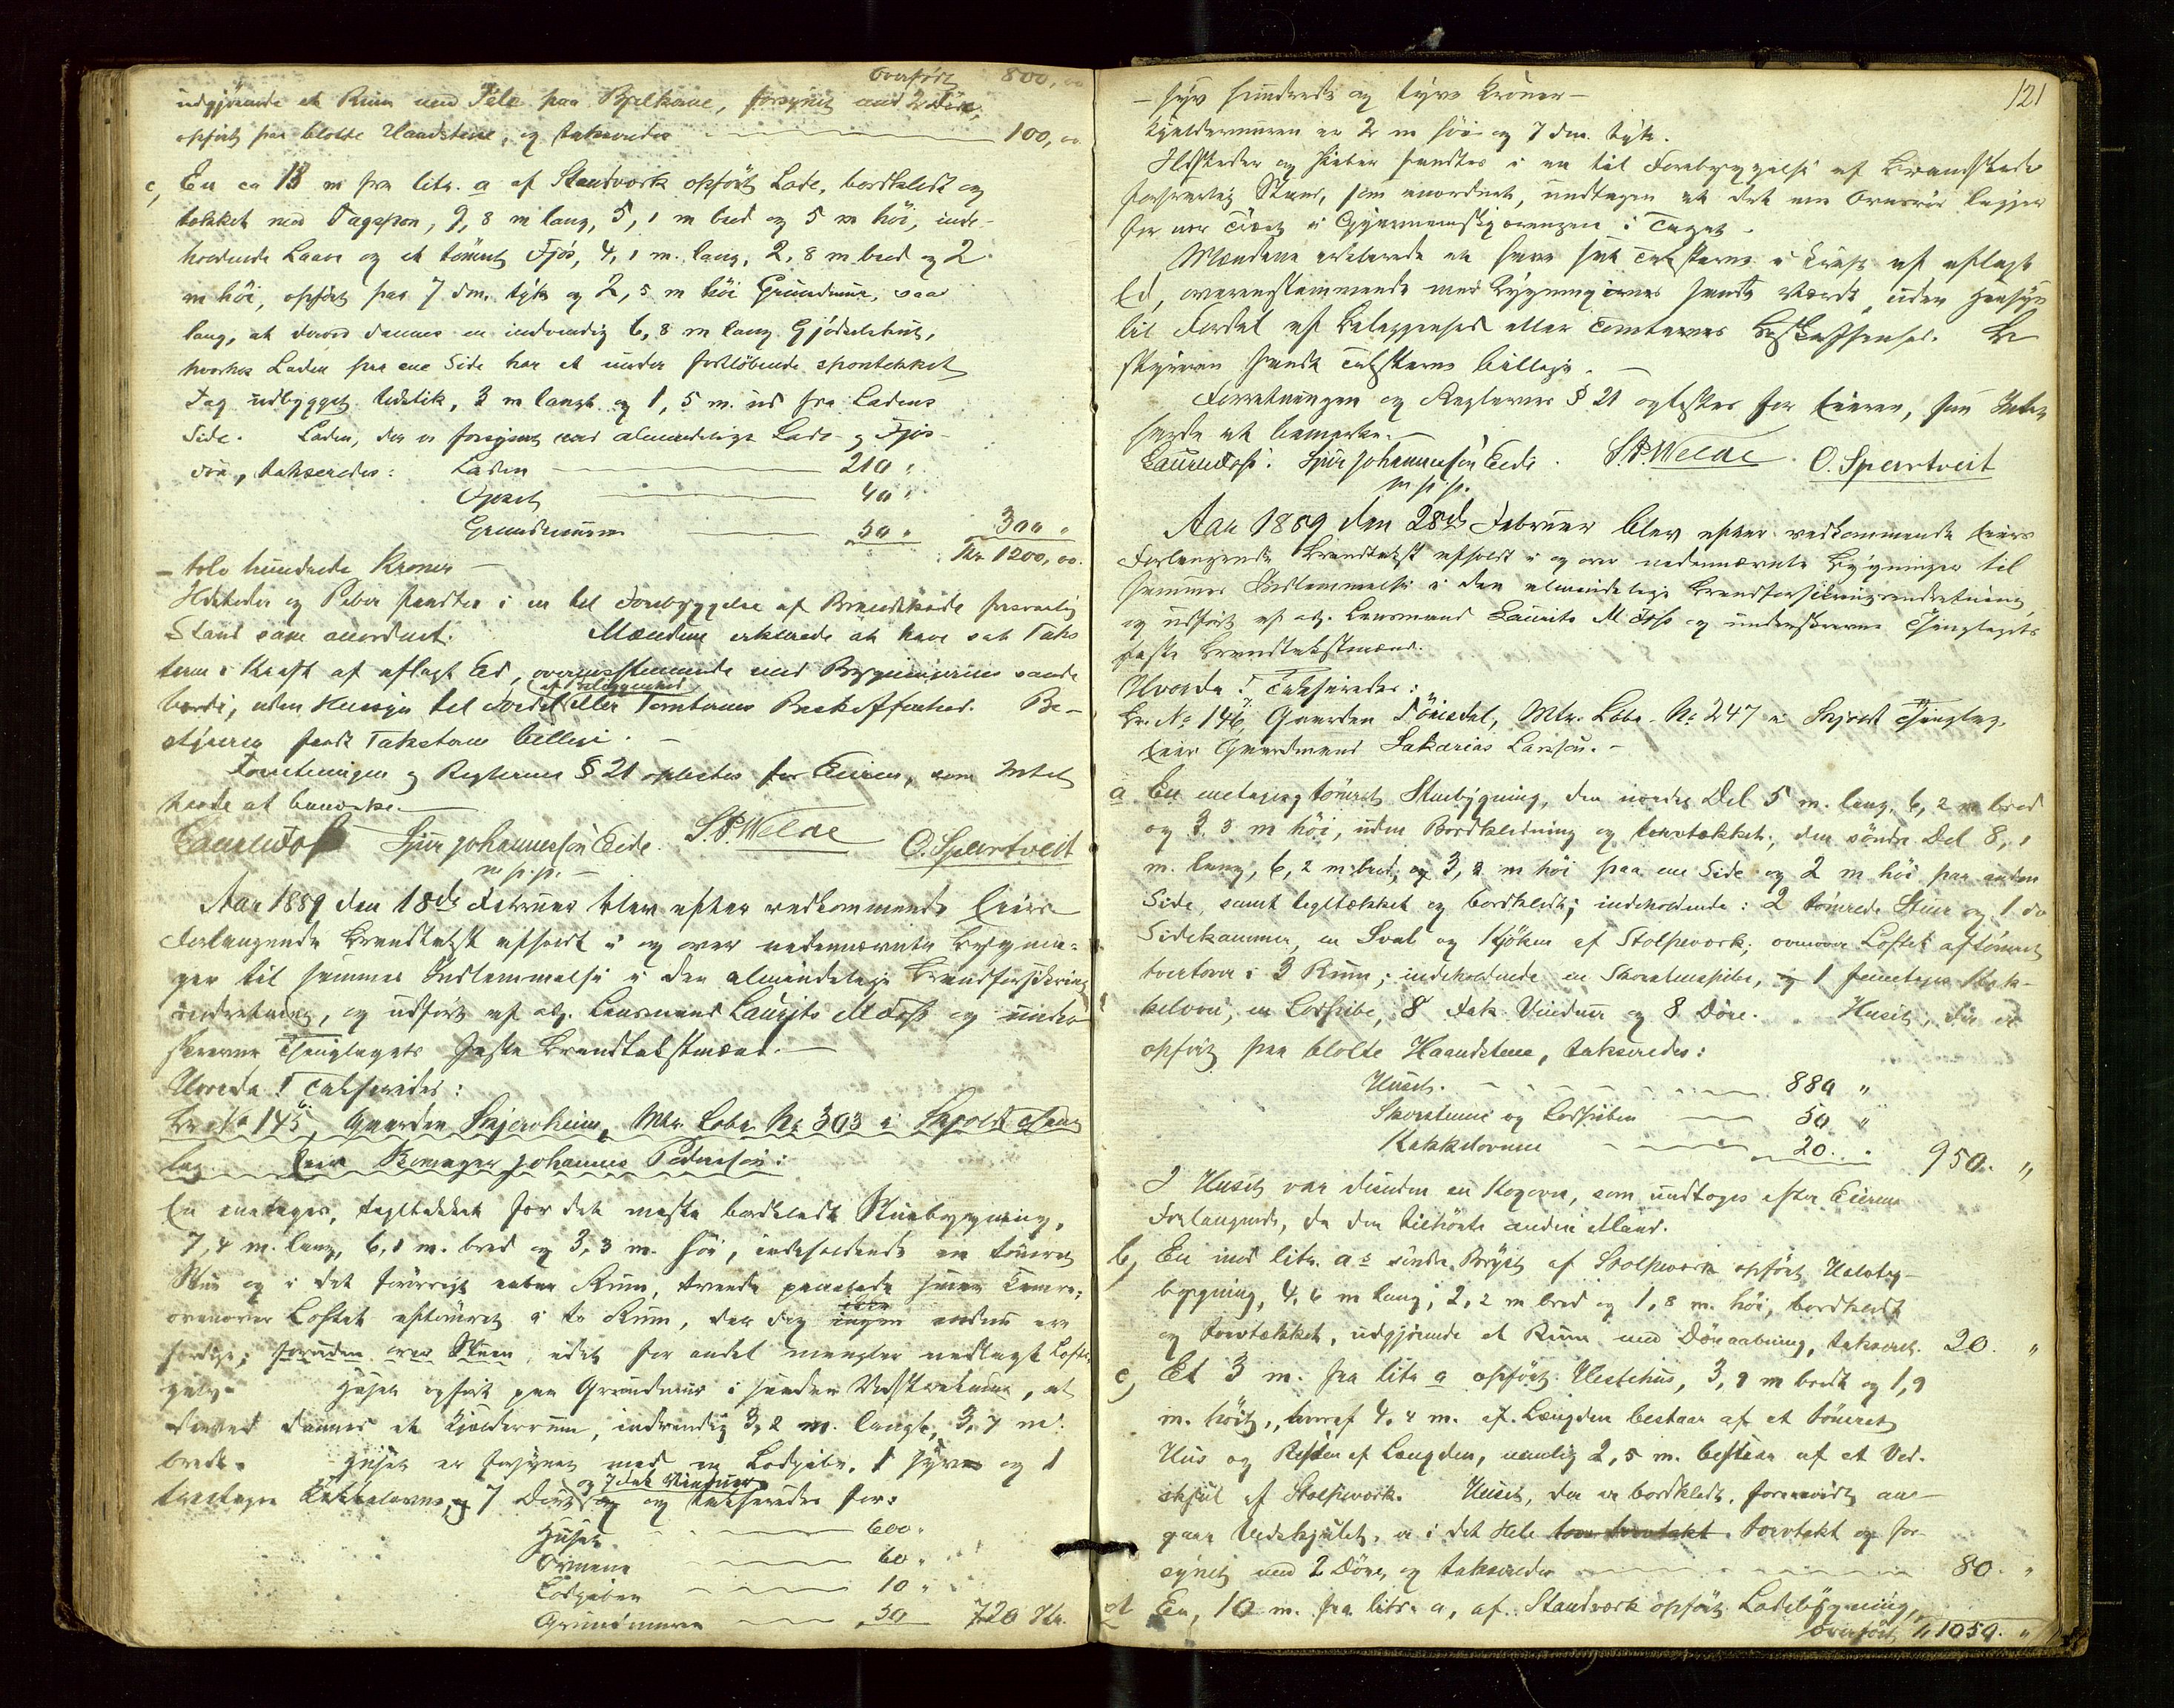 Overført 800,00
udgjørende et Rum med Fele paa Bjelkene, forsynet med 2 Døre,
opført paa blotte Haandstene, og takseredes 100,00
c, En ca 13 m fra litr. a af Standværk opført Lade, bordklædt og
tekket med Tagspon, 9,8 m lang, 5,1 m bred og 5 m høi, inde-
holdende Laave og et tømret Fjøs, 4,1 m. lang, 2,8 m bred og 2
m høi, opført paa 7 dm. tyk og 2,5 m høi Grundmur, saa
lang, at derved dannes en indvendig 6,8 m lang Gjødselshus,
hvorhos Laden paa ene Side har et under fortløbende spontekket
Tag udbygget, 3 m langt og 1,5 m. ud fra Ladens
Side. Laden, der er forsynet med almindelige Lade- og Fjøs-
døre, takseredes: Laden 210 "
Fjøset 40 "
Grundmuren 50 " 300 "
Kr. 1200,00.
– tolv hundrede Kroner –
Ildsteder og Piber fandtes i en til Forebyggelse af Brandskade forsvarlig
Stand som anordnet. Mændene erklærede at have sat Taks
terne i Kraft af aflagt Ed, overensstemmende med Bygningernes sande
Værdi, uden Hensyn til Fordel af Beliggenhed eller Tomternes Beskaffenhed. Be-
styreren fandt Taksterne billige. –
Forretningen og Reglernes § 21 oplæstes for Eieren, som Intet
havde at bemærke. –
Laur. M Foss Sjur Johannessøn Eide. S. P. Welde O. Spertveit
m. p. p. –
Aar 1889 den 18de Februar blev efter vedkommende Eiers
Forlangende Brandtakst afholdt i og over nedennævnte Bygnin-
ger til sammes Indlemmelse i den almindelige Brandforsikrings
indretning, og udført af cst. Lensmand Laurits M Foss og under-
skrevne Thinglagets faste Brandtakstmænd. –
Hvorda! Takseredes:
Br. No 145, Gaarden Skjersheim, Mtr. Løbe No 303 i Skjold Thing
lag. Eier Kirkesanger Johannes Pedersen:
En enetages, tegltækket for det meste bordklædt Stuebygning,
7,4 m. lang, 6,1 m. bred og 3,3 m. høi, indeholdende en tømret
Stue og i det forøvrigt aaben Rum, tvende panelede smaa Kamre,
ovenover Loftet aftømret i to Rum, der dog ikke endnu ere
færdige; foruden over Stuen, idet for andet mangler nedlagt Lofts
gulv. Huset opført paa Grundmur i saadan Udstrækning, at
derved dannes et Kjælderrum, indvendig 3,2 m. langt, 3,7 m.
bredt. Huset er forsynet med en Lodpibe, 1 Komfyr og 1
treetages Kakkelovne, 7 Døre og 7 Fak Vinduer og takseredes for:
Huset 600 "
Ovnene 60 "
Lodpiben 10 "
Grundmuren 50 720 Kr.
121
– syv hundrede og tyve Kroner –
Kjeldermuren er 2 m høi og 7 dm. tyk.
Ildsteder og Piber fandtes i en til Forebyggelse af Brandskade
forsvarlig Stand, som anordnet, undtagen at det ene Ovnsrør ligger
for nær Træet i Gjennemskjæringen i Taget –
Mændene erklærede at have sat Taksterne i Kraft af aflagt
Ed, overensstemmende med Bygningernes sande Værdi, uden Hensyn
til Fordel af Beliggenhed eller Tomternes Beskaffenhed. Be
styreren fandt Taksterne billige. –
Forretningen og Reglernes § 21 oplæstes for Eieren, som Intet
havde at bemærke. –
Laur. M Foss. Sjur Johannessøn Eide. S. P. Welde O. Spertveit
m. p. p.
Aar 1889 den 28de Februar blev efter vedkommende Eiers
Forlangende Brandtakst afholdt i og over nedennævnte Bygninger til
sammes Indlemmelse i den almindelige Brandforsikringsindretning
og udført af cst. Lensmand Laurits M Foss og underskrevne Thinglagets
faste Brandtakstmænd.
Hvorda! Takseredes:
Br. No 146, Gaarden Dønsdal, Mtr. Løbe- No 247 i Skjold Thinglag.
Eier Gaardmand Sakarias Larssøn. –
a En enetages tømret Stuebygning, den nordre Del 5 m. lang, 6,2 m bred
og 3,3 m høi, uden Bordklædning og torvtækket; den søndre Del 8,1
m. lang, 6,2 m. bred, og 3,8 m høi paa ene Side og 2 m høi paa anden
Side, samt tegltækket og bordklædt; indeholdende: 2 tømrede Stuer og 1 do
Sidekammer, en Sval og Kjøken af Stolpeværk; ovenover Loftet aftømret
tvertover i 3 Rum; indeholdende en Skorstenspibe, 1 femetages Kak-
kelovn, en Lodpibe, 8 Fak Vinduer og 8 Døre. Huset, der er
opført paa blotte Haandstene, takseredes:
Huset. 880 "
Skorstene og Lodpiben 50 "
Kakkelovnene 20. " 950. "
I Huset var desuden en Kogovn, som undtoges efter Eierens
Forlangende, da den tilhørte anden Mand.
b, En ind litr. a's søndre Bryst af Stolpeværk opført Halvtag-
bygning, 4,6 m lang, 2,2 m bred og 1,8 m. høi, bordklædt
og torvtækket, udgjørende et Rum med Døraabning, takseret. 20. "
c, Et 3 m. fra litr a opført Hestehus, 3,9 m bredt og 1,9
m. høit, hvoraf 4,4 m. af Længden bestaar af et tømret
Hus og Resten af Længden, nemlig 2,5 m. bestaar af et Ved-
skjul af Stolpeværk. Huset, der er bordklædt, forsaavidt an-
gaar Vedskjulet, er i det Hele torvtekt og for-
synet med 2 Døre, og takseredes 80. "
d En, 10 m. fra litr. a, af Standværk opført Ladebygning,
Overført Kr 1050. "